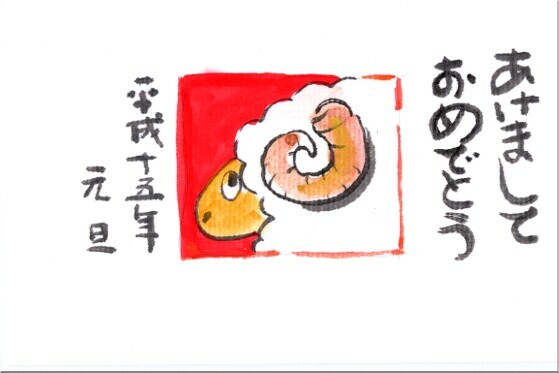 あけまして
おめでとう
平成十五年
元旦